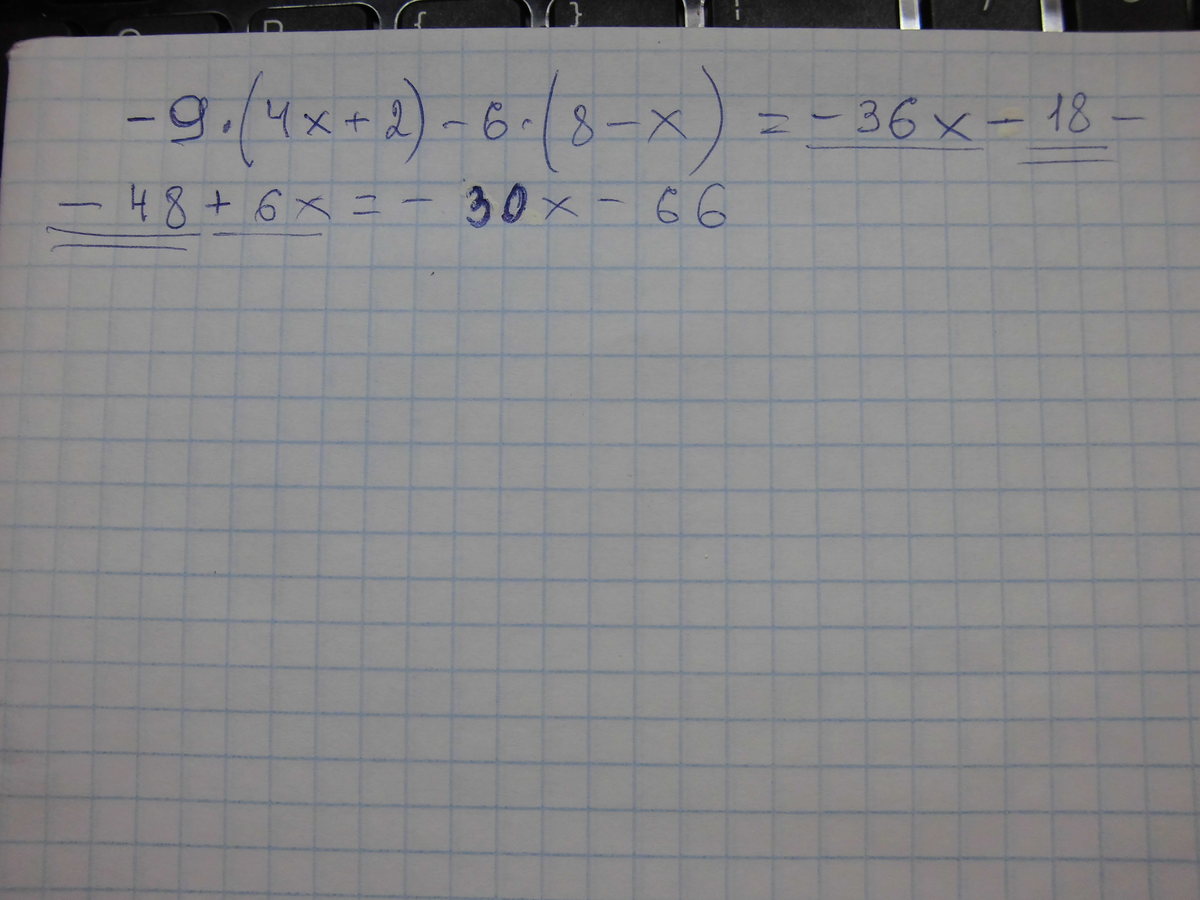 -9·(4x+2)-6·(8-x) = -36x - 18 -
- 48 + 6x = - 30x - 66